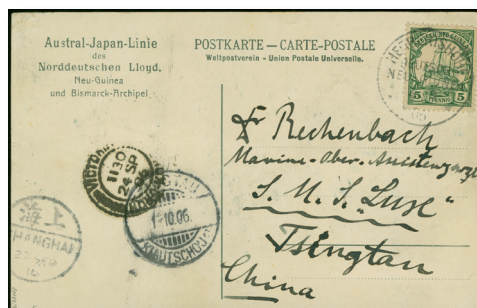 Austral-Japan-Linie
des
Norddeutschen Lloyd.
Neu-Guinea
und Bismarck-Archipel.
POSTKARTE — CARTE-POSTALE
Weltpostverein - Union Postale Universelle.
5 PFENNIG 5
Rechenbach
Marine-Ober-Assistenzarzt
S. M. S. "Luxe"
Tsingtau
China
VICTORIA
1130
24 SP
1.10.06.
KIAUTSCHOU
海上
SHANGHAI